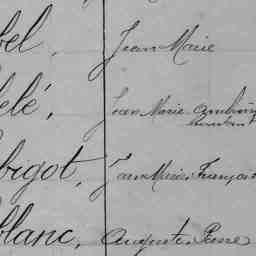 bel, Jean Marie
elé, Jean Marie Ambroise
bigot, Jean Marie François
blanc, Auguste Pierre